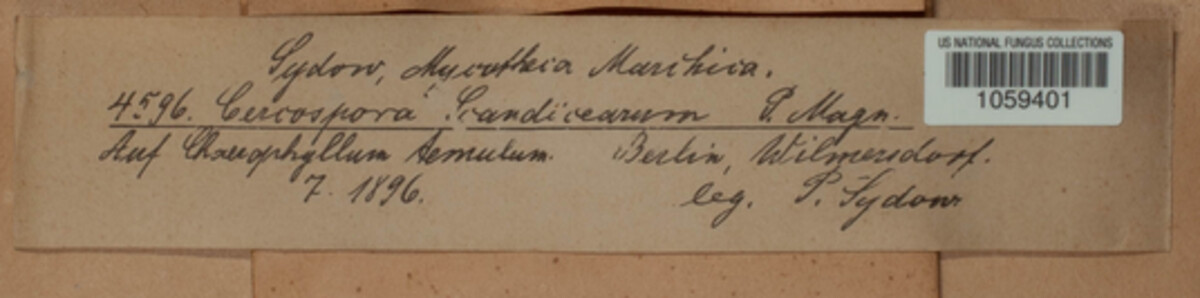 Sydow, Mycotheca Marchica.
4596. Cercospora Scandicearum P. Magn.
Auf Chaerophyllum temulum. Berlin, Wilmersdorf.
7. 1896. leg. P. Sydow
US NATIONAL FUNGUS COLLECTIONS
1059401